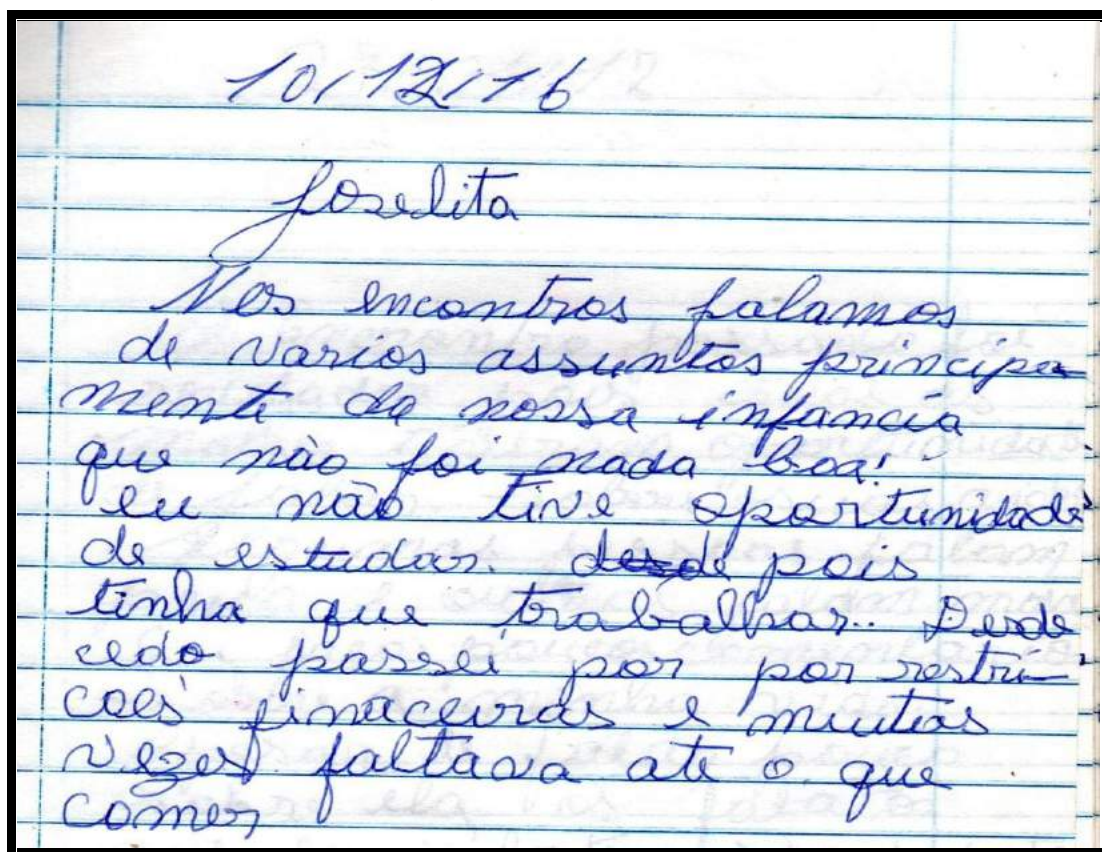 10/12/16
Joselita
Nos encontros falamos
de varios assuntos principa-
mente da nossa infancia
que não foi nada boa!
eu não tive oportunidade
de estudar. desde pois
tinha que trabalhar. Desde
cedo passei por por restri-
coes finaceiras e muitas
vezes faltava ate o que
comer